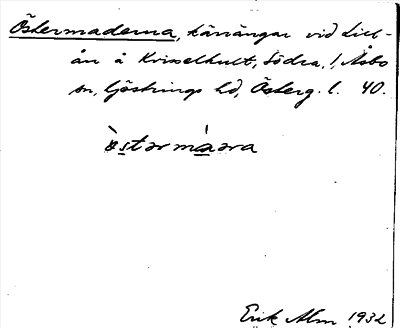 Östermaderna, kärrängar vid Lill-
ån å Krisselhult, Södra, i Åsbo
sn, Göstrings hd, Österg. l. 40.
östərmaəra
Erik Alm 1932